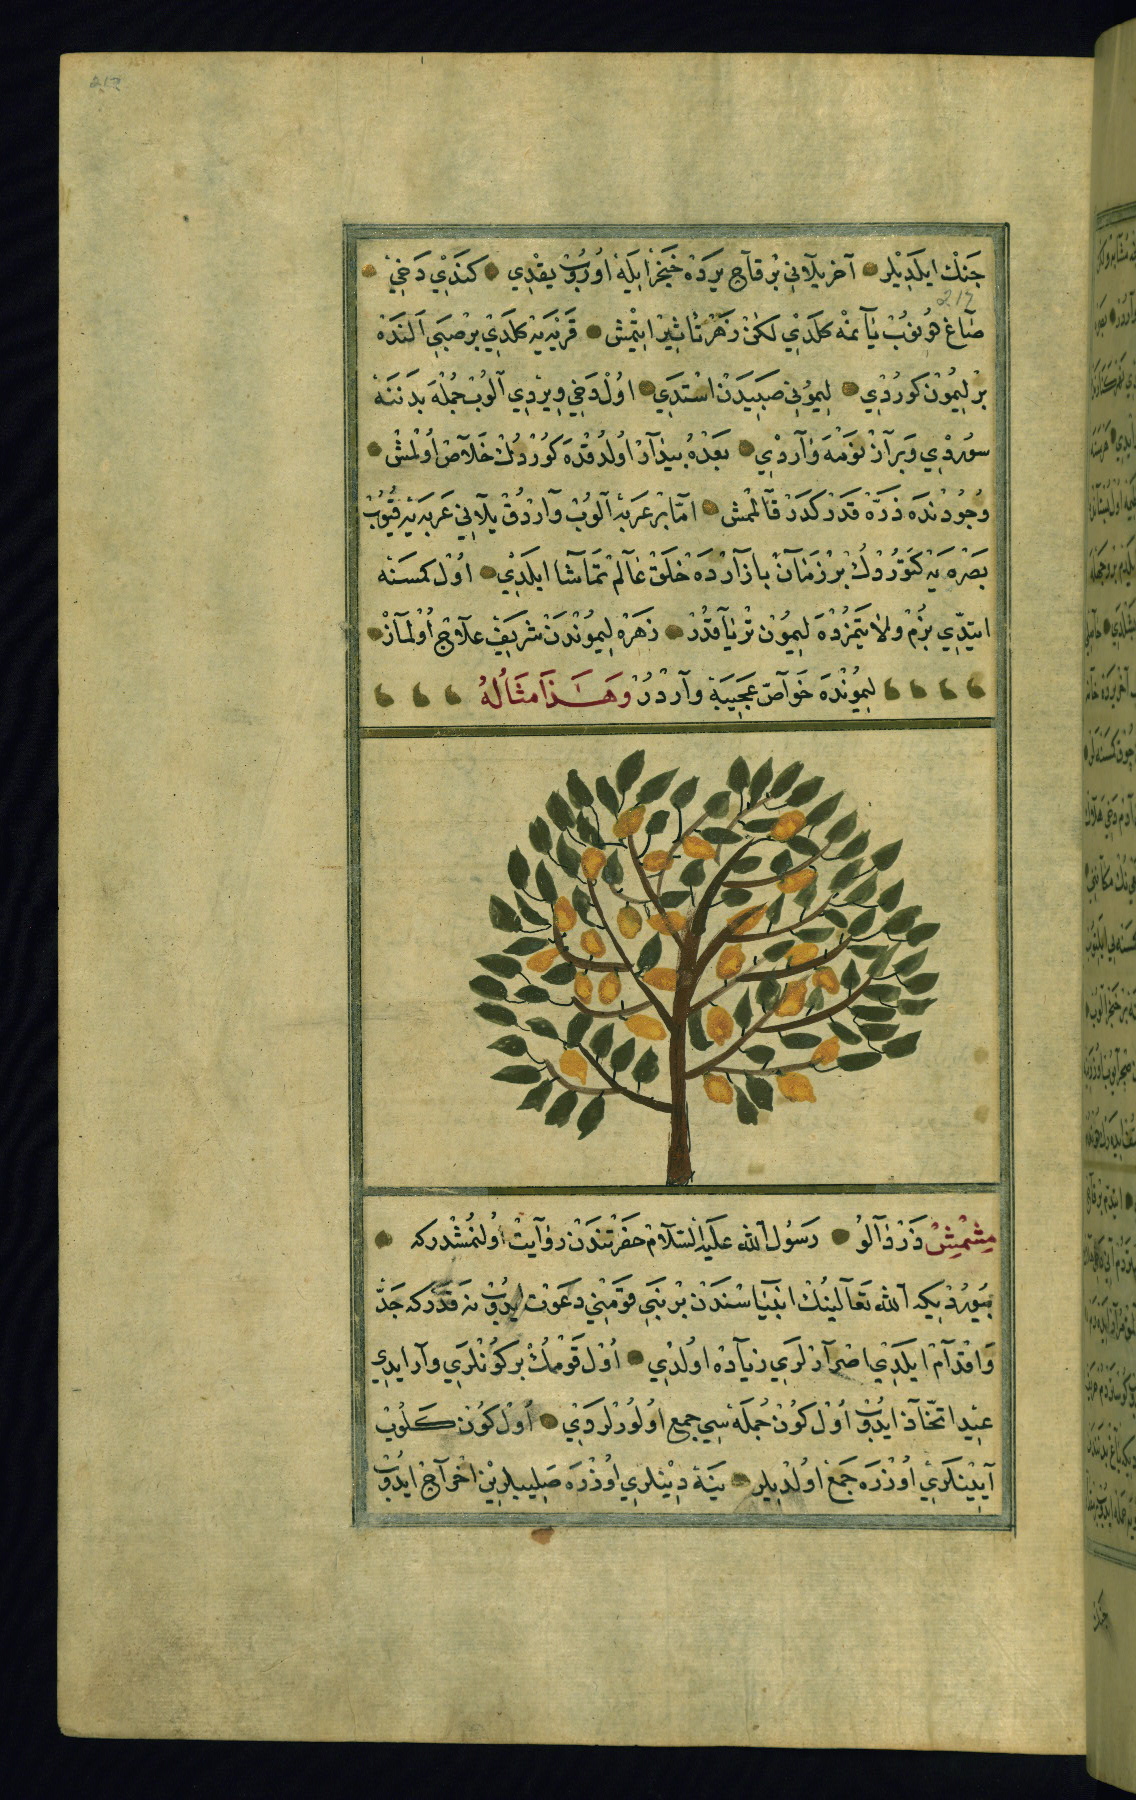 جنك ايلديلر آخر يلاني برقاچ يردە خنجر ايلە اوروب يقدي كندي دخي
صاغ يانمە كلدي لكن زهر تاثير ايتمش قريەيە كلدي بر صبي النده
بر ليمون كوردي ليموني صبيدن استدي اول دخي ويردي آلوب جملە بدننە
سوردي وبر آز واردي بعده بيدار اولدقده كوردك خلاص اولمش
وجودنده ذره قدر كدر قالممش اما بر عربە آلوب واردق يلاني عربەيە قيوب
بصرەيە كتوردك بر زمان بازارده خلق عالم تماشا ايلدي اول كمسنە
ايتدي بزم ولايتمزده ليمون زهره ليموندن شريف علاج اولماز
ليمونده خواص عجيبە واردر وهذا مثاله
مشمش زردالو رسول الله عليه السلام حضرتندن روايت اولنمشدركە
بيوردىكە الله تعالينك انبياسندن بر نبي قومني دعوت ايدوب نە قدركە جد
واقدام ايلدي اضرارلري زياده اولدي اول قومك بر كونلري وار ايدي
عيد اتخاذ ايدوب اول كون جملەسي جمع اولورلردي اول كون كلوب
آيينلري اوزره جمع اولديلر ينە دينلري اوزره صليبلرين اخراج ايدوب